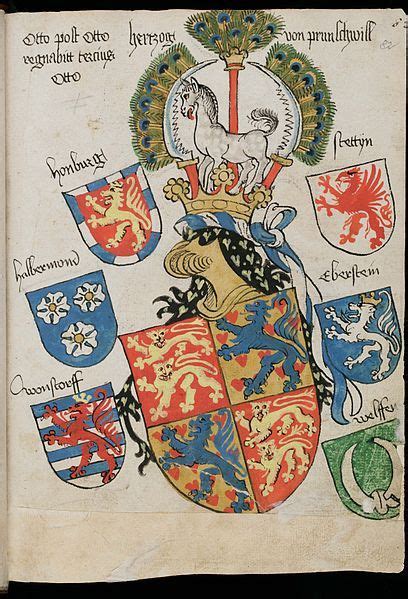 Otto post Otto
regnabit tercius
Otto
hertzog
von prunschwill
82
honburgk
stettyn
halbermond
Eberstein
Cwonstorff
welffen